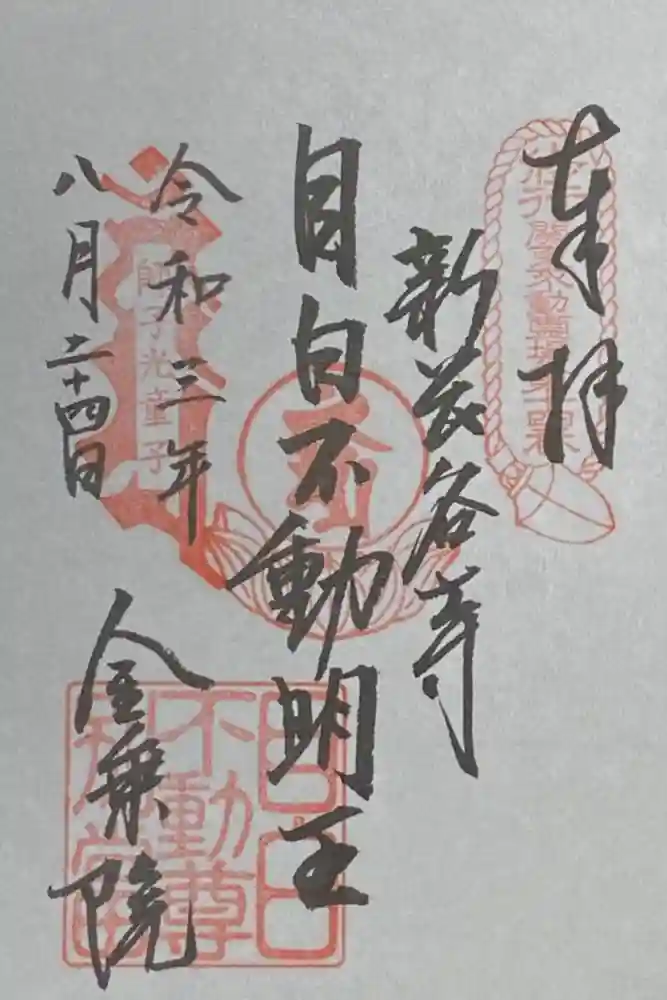 奉拝
新長谷寺
目白不動明王
令和三年
八月二十四日
金乗院
師子光童子
目白
不動尊